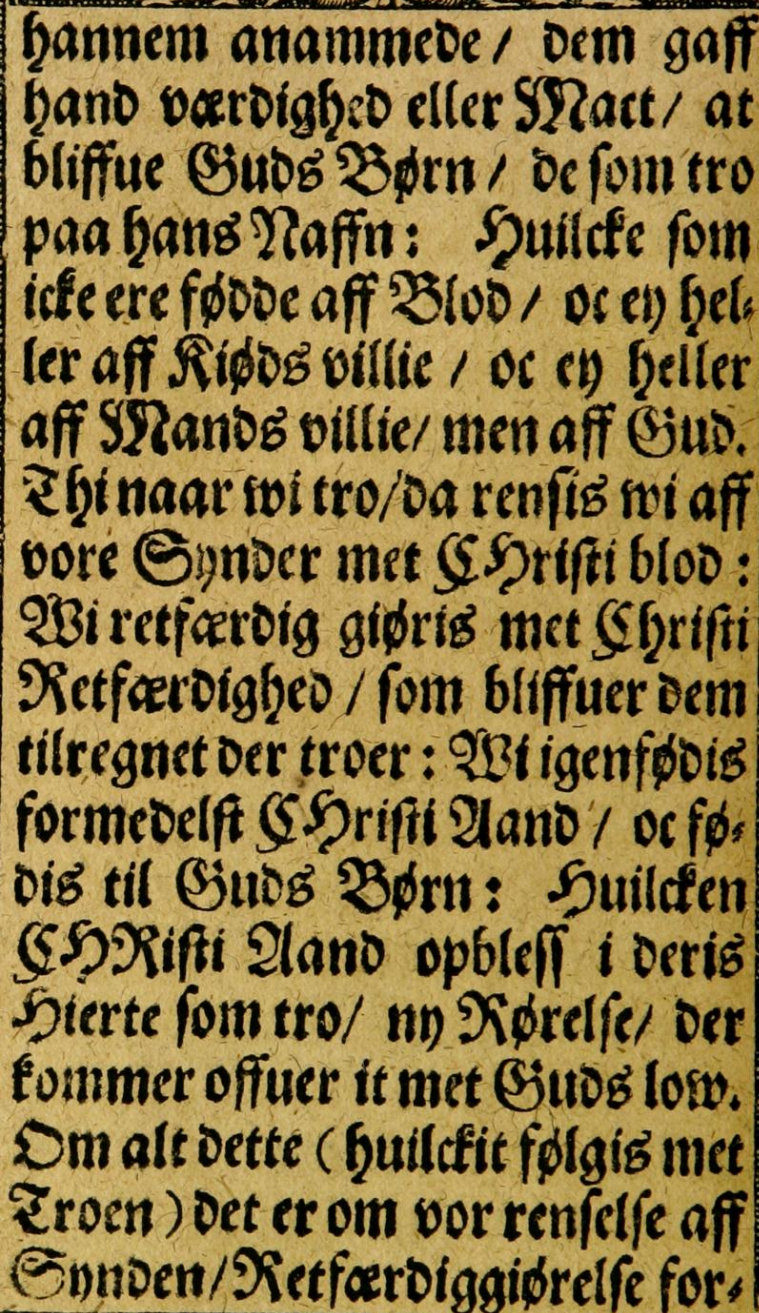 hannem anammede / dem gaff
hand værdighed eller Mact / at
bliffue Guds Børn / de som tro
paa hans Naffn: Huilcke som
icke ere fødde aff Blod / oc ey hel-
ler aff Kiøds villie / oc ey heller
aff Mands villie / men aff Gud.
Thi naar wi tro / da rensis wi aff
vore Synder met CHristi blod:
Wi retfærdig giøris met Christi
Retfærdighed / som bliffuer dem
tilregnet der troer: Wi igenfødis
formedelst CHristi Aand / oc fø-
dis til Guds Børn: Huilcken
CHRisti Aand opbless i deris
Hierte som tro / ny Rørelse / der
kommer offuer it met Guds low.
Om alt dette (huilckit følgis met
Troen) det er om vor renselse aff
Synden / Retfærdiggiørelse for-